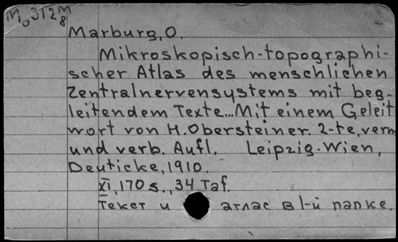 M 312 M
0 8
Marburg, O.
Mikroskopisch-topographi-
scher Atlas des menschlichen
Zentralnervensystems mit beg-
leitendem Texte... Mit einem Geleit
wort von H. Obersteiner. 2-te, verm
und verb. Aufl. Leipzig-Wien,
Deuticke, 1910.
XI, 170 s., 34 Taf.
Текст и атлас в 1-й папке.